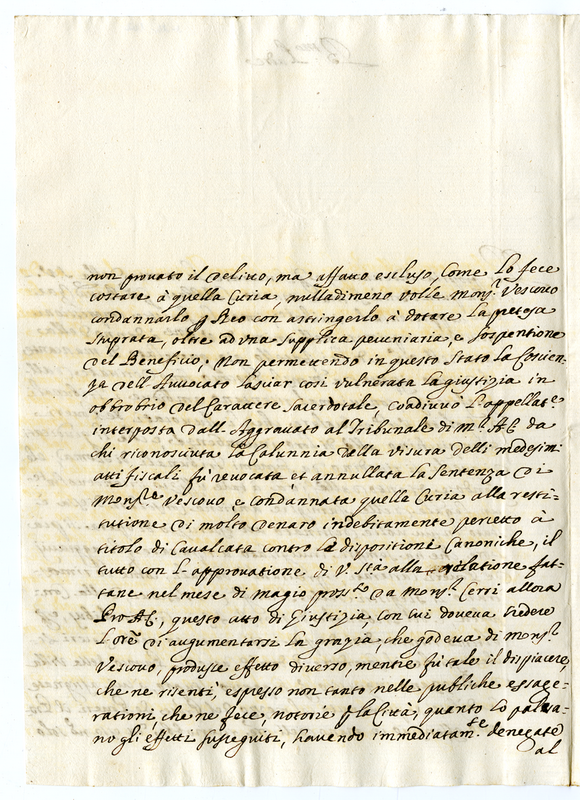 non prouato il delitto, ma affatto escluso, Come lo fece
costare à quella Curia, nulladimeno volle Mons.r Vescouo
condannarlo p Reo con astringerlo à dotare la pretesa
stuprata, oltre ad vna supplica pecuniaria, e sospentione
del Benefitio; Non permettendo in questo stato la Coscien-
za dell'Auuocato lasciar così vulnerata la giustizia in
obbrobrio del Carattere sacerdotale, coadiuuò l'appellat.e
interposta dall'Aggrauato al Tribunale di m.r AC da
chi riconosciuta la Calunnia dalla visura delli medesimi
atti fiscali fù reuocata et annullata la sentenza di
Mons.re Vescouo, e condannata quella Curia alla resti-
tutione di molto denaro indebitamente percetto à
titolo di Caualcata contro le dispositioni Canoniche, il
tutto con l'approuatione di V. Stà alla relatione fat-
tane nel mese di magio pross.to da Mons.r Cerri allora
ProAC, questo atto di Giustizia, con cui doueua credere
l'Ore di augumentarsi la grazia, che godeua di Mons.r
Vescouo, produsse effetto diuerso, mentre fù tale il dispiacere,
che ne risentì, espresso non tanto nelle publiche essage-
rationi, che ne fece, notorie p la Città, quanto lo palesa-
no gli effetti susseguiti, hauendo immediatam.te denegate
al